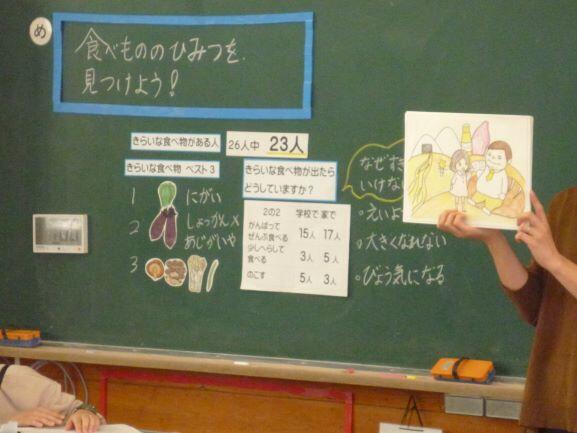 め
食べもののひみつを
見つけよう!
きらいな食べ物がある人
26人中 23人
きらいな食べ物 ベスト3
1
にがい
2
しょっかん×
あじがいや
3
きらいな食べ物が出たら
どうしていますか?
2の2 学校で 家で
がんばって
ぜんぶ食べる 15人 17人
少しへらして
食べる 3人 5人
のこす 5人 3人
なぜすき
いけない
。えいよ
。大きくなれない
。びょう気になる